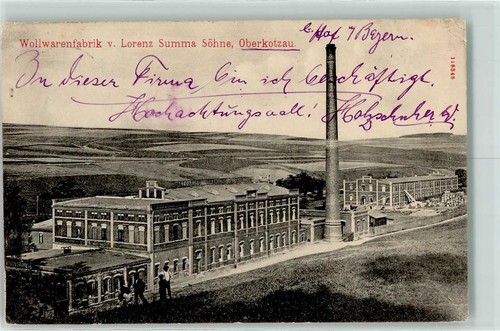 Wollwarenfabrik v. Lorenz Summa Söhne, Oberkotzau. b. Hof i/Bayern.
In dieser Firma bin ich beschäftigt.
Hochachtungsvoll!